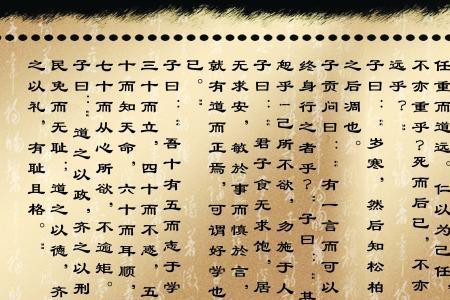 任重而道远。仁以为己任
不亦重乎？死而后已，不亦
远乎？"
子曰："岁寒，然后知松柏
之后凋也。
子贡问曰："有一言而可以
终身行之者乎？"子曰："其
恕乎！己所不欲，勿施于人
子曰："君子食无求饱，居
无求安，敏於事而慎於言，
就有道而正焉，可谓好学也
已。"
子曰："吾十有五而志于学
三十而立，四十而不惑，五
十而知天命，六十而耳顺，
七十而从心所欲，不逾矩。
子曰："道之以政，齐之以刑
民免而无耻；道之以德，齐
之以礼，有耻且格。"